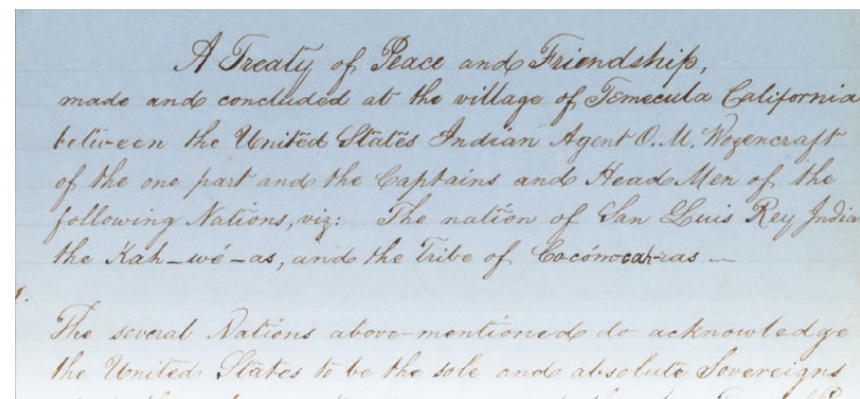 A Treaty of Peace and Friendship,
made and concluded at the village of Temecula California
between the United States Indian Agent O. M. Wozencraft
of the one part and the Captains and Head Men of the
following Nations, viz: The nation of San Luis Rey India
the Kah-wé-as, and the Tribe of Cocómcah-ras —
1.
The several Nations above-mentioned do acknowledge
the United States to be the sole and absolute Sovereigns